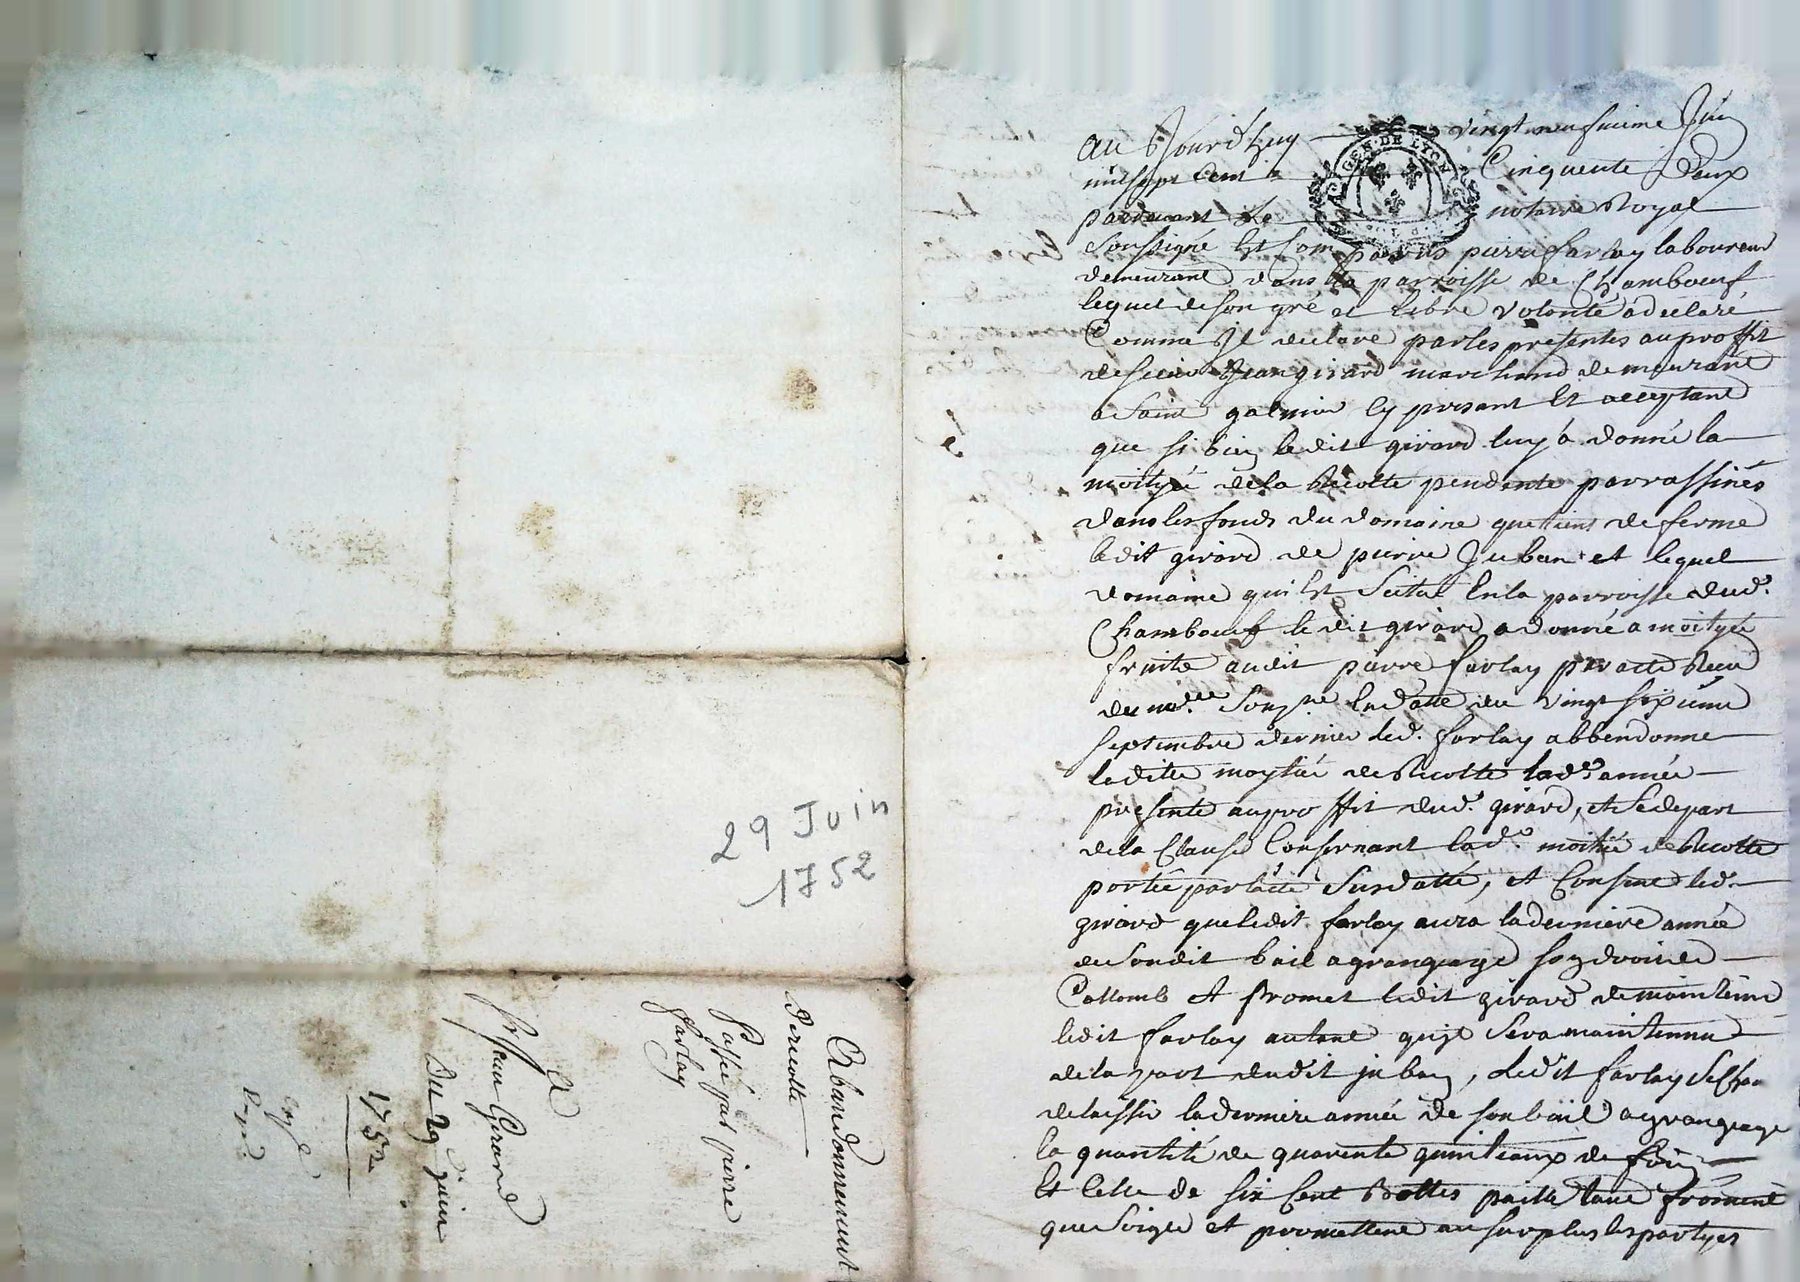 29 Juin
1752
Abandonnement
De recolte
Passé par pierre
farlay
A
Sr Jean Girard
Du 29 juin
1752
GEN. DE LYON
Au Jourd'huy vingt neufvieme Juin
mil sept Cent Cinquante Deux
pardevant Le notaire Royal
soussigné Est Comparus pierre farlay laboureur
demeurant dans la parroisse de Chambœuf
lequel de son gré et libre volonté a declaré
Comme Il declare par les presentes au proffit
de sieur Jean girard marchand demeurant
a Saint galmier Cy present Et acceptant
que si bien ledit girard luy a donné la
moityé de la Recolte pendente par rassines
dans les fonds du domaine que tient de ferme
ledit girard de pierre Juban et lequel
domaine qui Est Scitué En la parroisse dud.
Chambœuf le dit girard a donné a moityé
fruits audit pierre farlay par acte Receu
du md. nre Sousne En datte du vingt sixieme
septembre dernier led. farlay abbendonne
ledite moytié de Recolte lade année
presente au proffit dud. girard, et se depart
de la Clause Consernant lade. moitié de Recolte
portée par l'acte Susdatté, et Consent led.
girard que ledit farlay aura la derniere année
du Sondit bail a grangeage son droit de
Collomb et promet ledit girard de maintenir
ledit farlay autant qu'il Sera maintenu
de la part dudit juban, Ledit farlay
de laisser la derniere année de son bail a grangeage
la quantité de quarente quinteaux de foin
Et Celle de six Cent Bottes paille tant froment
que Soigle et promettent au surplus les partyes